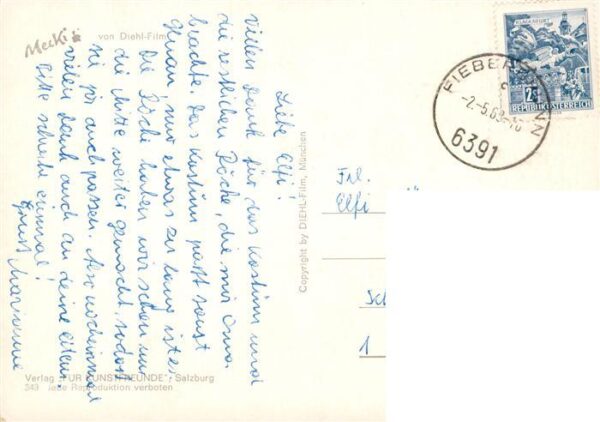 Mecki
von Diehl-Film
Liebe Elfi!
Vielen Dank für das Kostüm und
die restlichen Röcke, die mir Oma
brachte. Das Kostüm passt sonst
genau, nur etwas zu lang ist es.
Die Röcke haben wir schon um
die Mitte weiter gemacht, sodass
sie jetzt auch passen. Also nocheinmal
vielen Dank auch an deine Eltern.
Bitte schreibe einmal!
Gruss Marianne
Verlag „FÜR KUNSTFREUNDE", Salzburg
343 Jede Reproduktion verboten
Copyright by DIEHL-Film, München
KLAGENFURT
2 S
REPUBLIK ÖSTERREICH
FIEBERBRUNN
-2.-5.68-18
6391
Frl.
Elfi
Sch
1